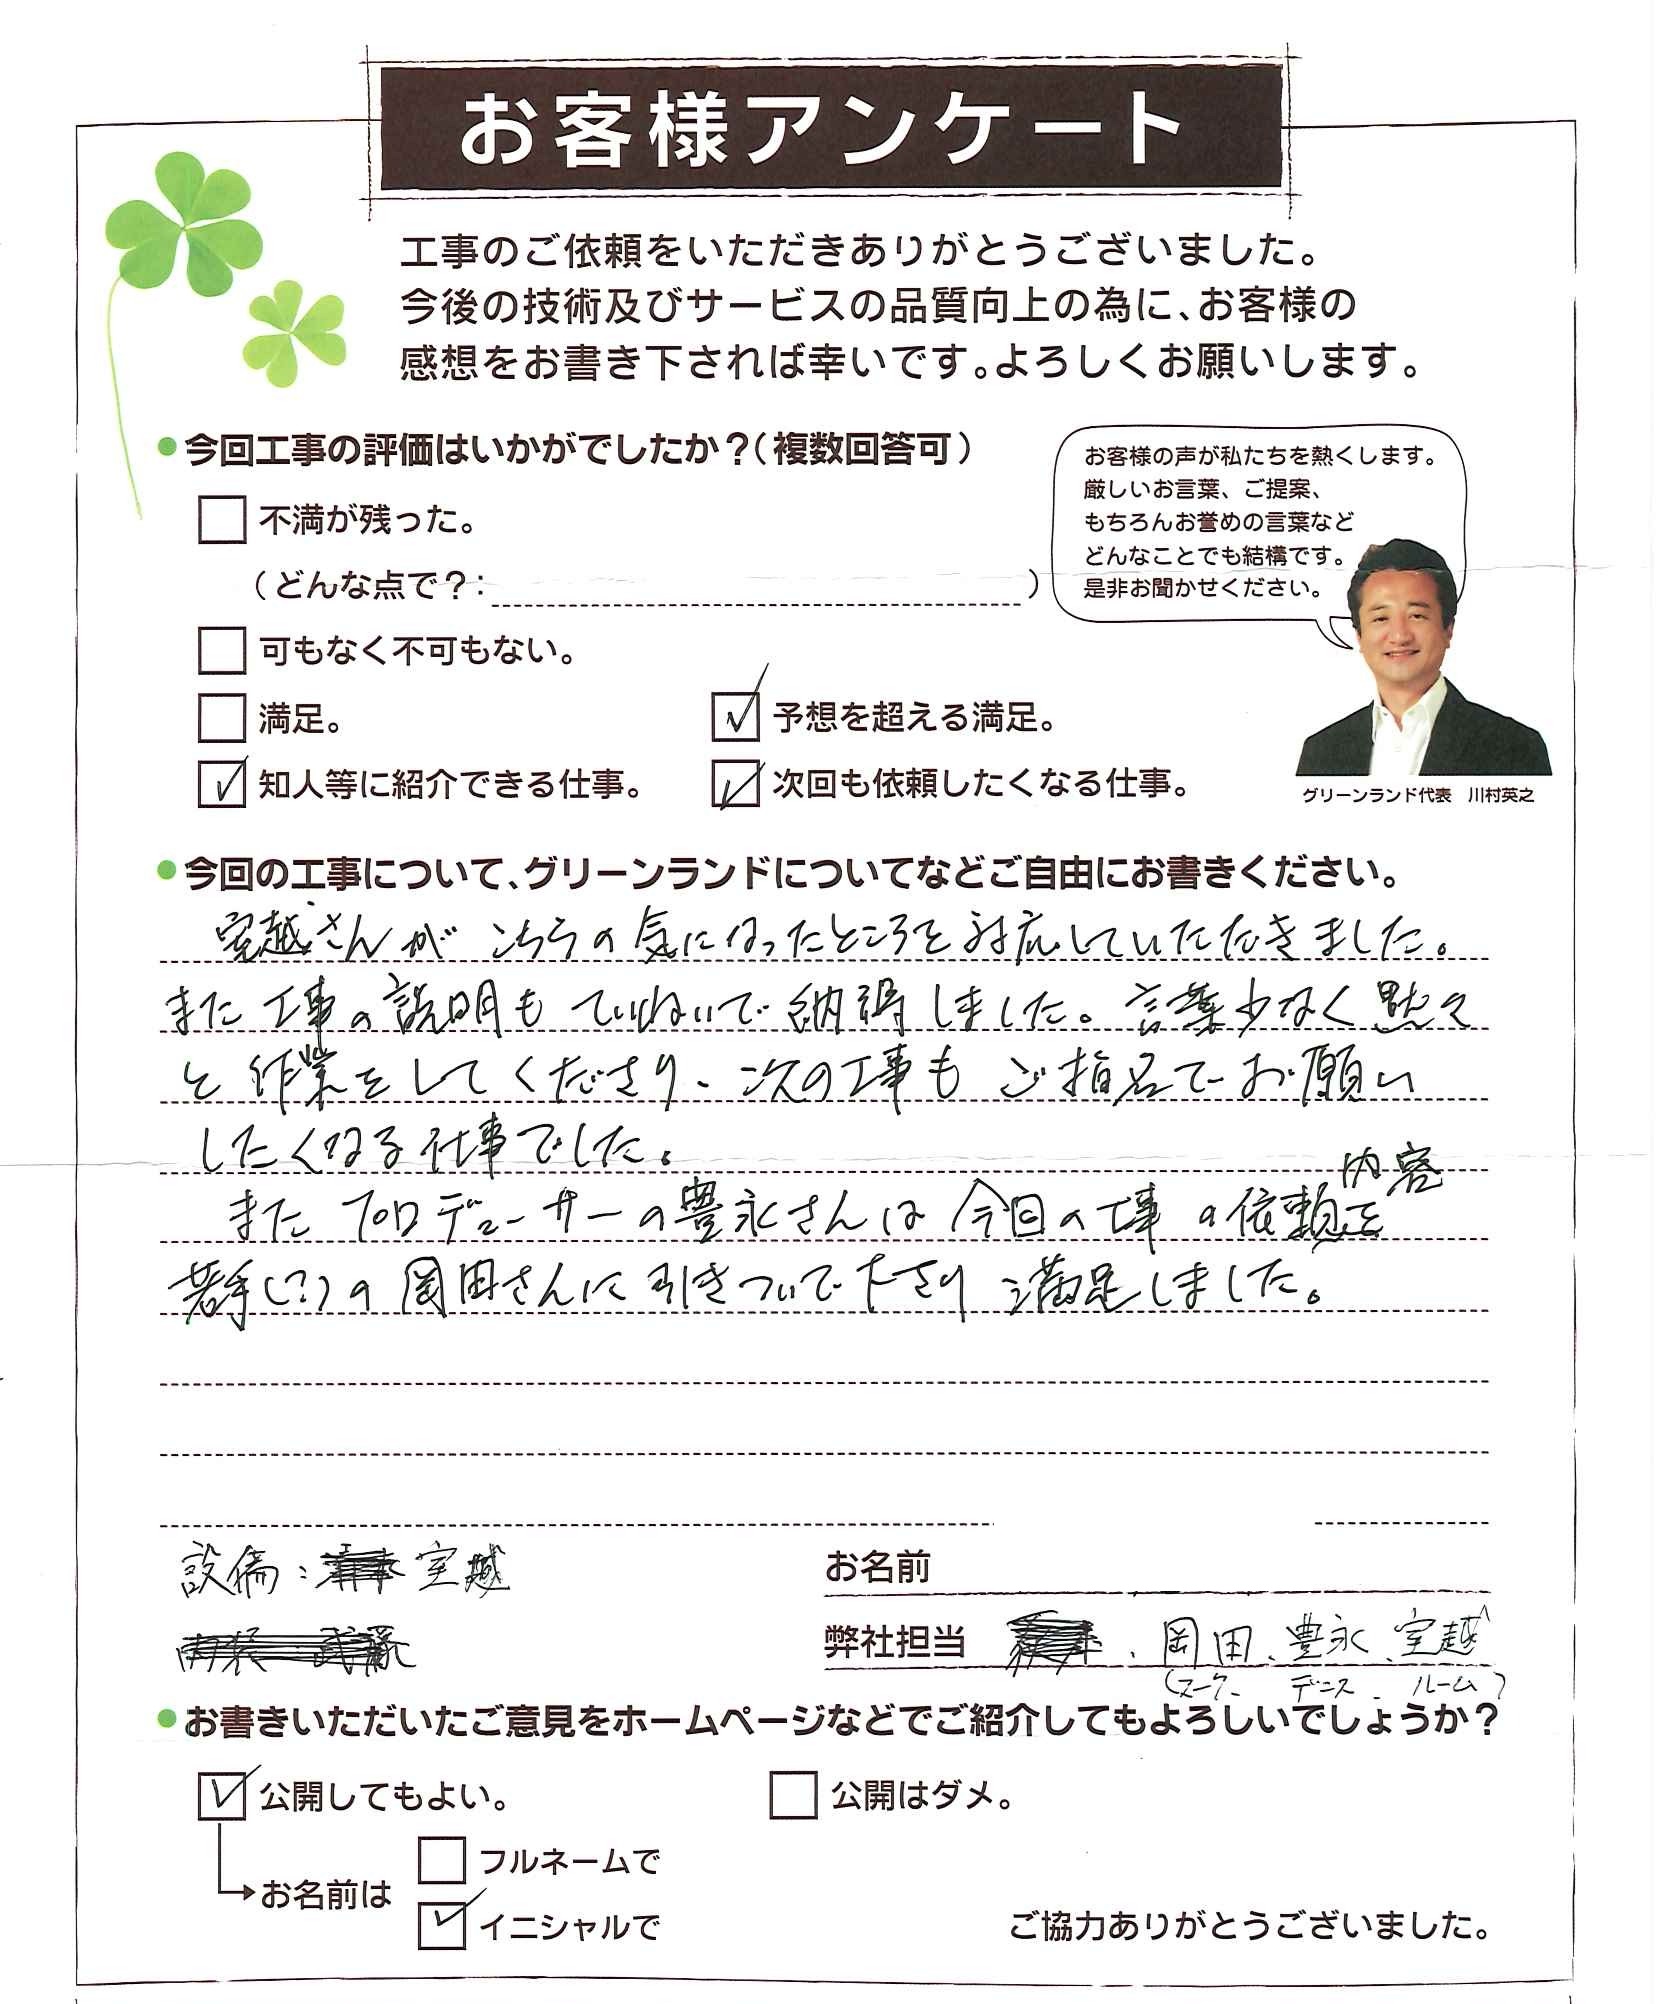 お客様アンケート
工事のご依頼をいただきありがとうございました。
今後の技術及びサービスの品質向上の為に、お客様の
感想をお書き下されば幸いです。よろしくお願いします。
今回工事の評価はいかがでしたか？（複数回答可）
不満が残った。
（どんな点で？：　）
可もなく不可もない。
満足。
予想を超える満足。
知人等に紹介できる仕事。
次回も依頼したくなる仕事。
お客様の声が私たちを熱くします。
厳しいお言葉、ご提案、
もちろんお誉めの言葉など
どんなことでも結構です。
是非お聞かせください。
グリーンランド代表　川村英之
今回の工事について、グリーンランドについてなどご自由にお書きください。
室越さんが こちらの気になったところを対応していただきました。
また工事の説明も ていねいで納得しました。言葉少なく黙々
と作業をしてくださり、次の工事も ご指名でお願い
したくなる仕事でした。
また プロデューサーの豊永さんは 今回の工事の依頼内容を
若手(?)の岡田さんに引きついで下さり 満足しました。
設備：室越
お名前
弊社担当 、岡田、豊永、室越
(スーク、デニス、ルーム)
お書きいただいたご意見をホームページなどでご紹介してもよろしいでしょうか？
公開してもよい。
公開はダメ。
お名前は
フルネームで
イニシャルで
ご協力ありがとうございました。